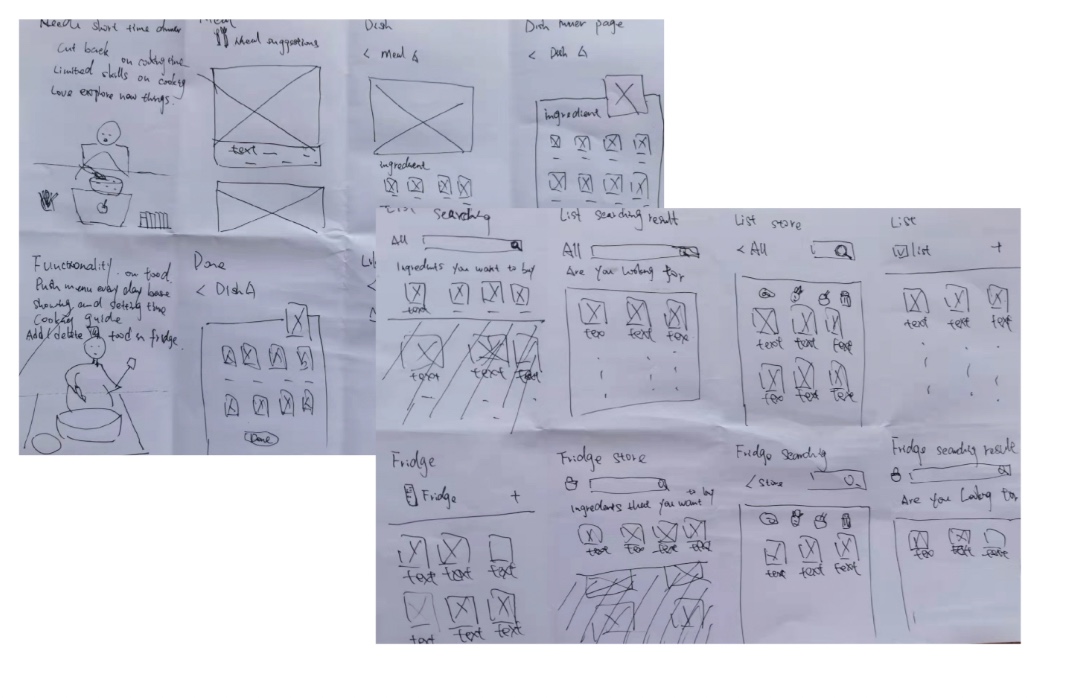 Needs short time dinner
Cut back on cooking time
Limited skills on cooking
Love explore new things.
Meal
Meal suggestions
text
Dish
< Meal
ingredient
Dish inner page
< Dish
ingredient
Functionality. on food.
Push menu every day base
showing and setting time
Cooking guide
Add/delete food in fridge.
Done
< Dish
Done
searching
All
Ingredients you want to buy
text
text text text
List searching result
All
Are You Looking for
tex text tex
List store
< All
text text text
tex text text
List
list +
text text text
Fridge
Fridge +
text text text
text text text
Fridge store
Ingredients that you want to buy
text Tex text text
Fridge searching
< Store
text text text
Fridge searching result
Are You Looking for
tex text text